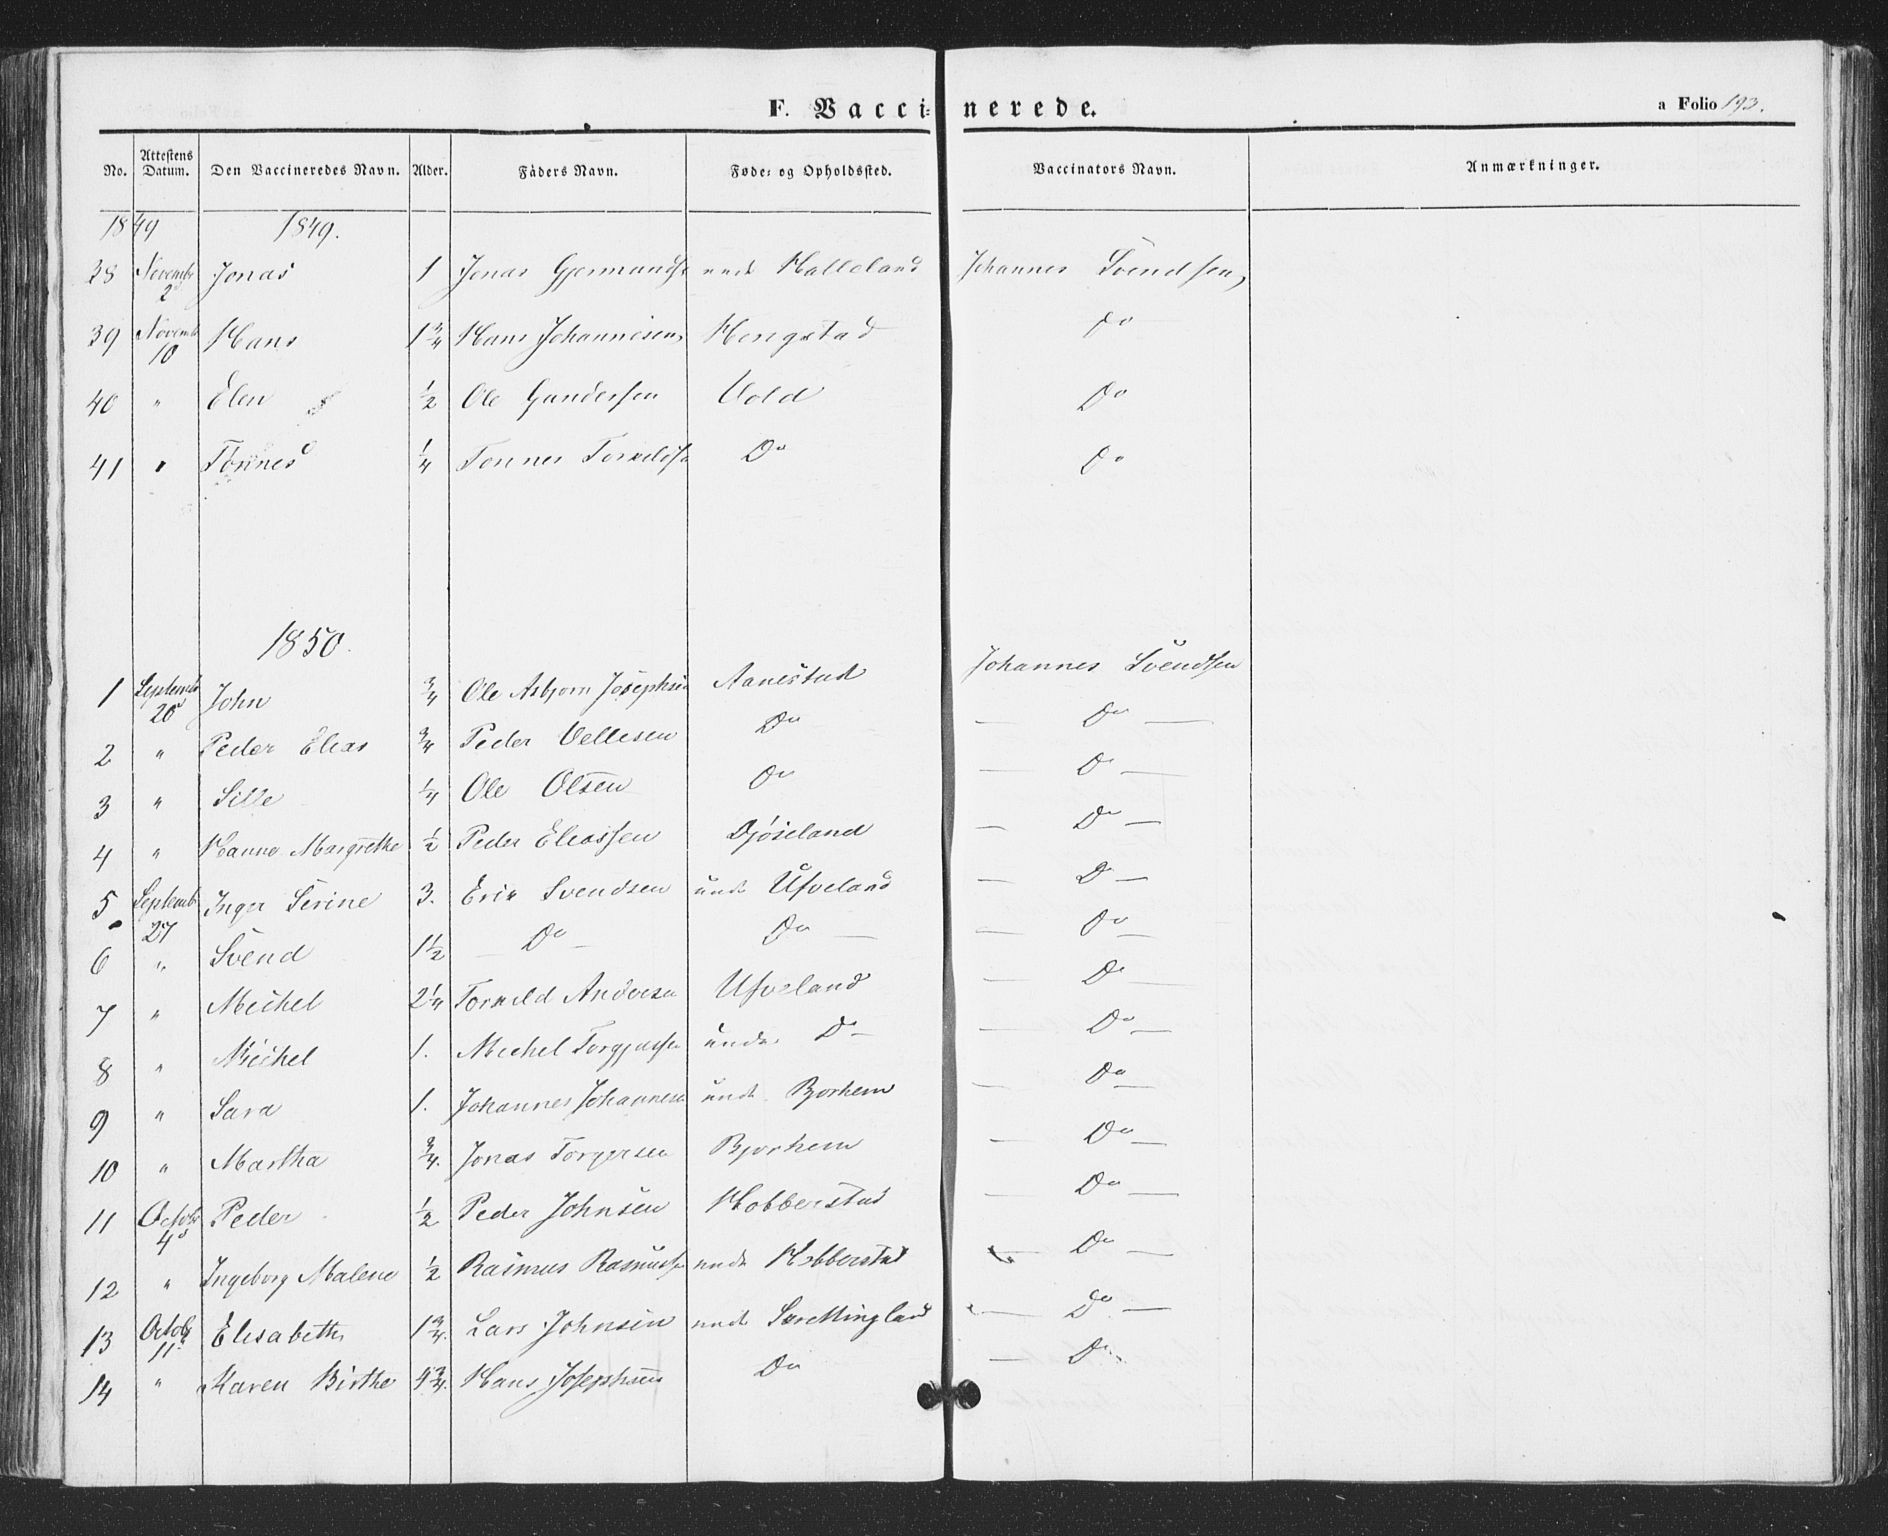 F. Vaccinerede. a Folio 193.
No. Attestens Datum. Den Vaccineredes Navn. Alder. Faders Navn. Føde- og Opholdssted. Vaccinators Navn. Anmærkninger.
1849 1849.
38 Novembr 2 Jonas 1 Jonas Gjermunds undr Halleland Johannes Svendsen
39 Novemb 10 Hans 1 3/4 Hans Johannesen Hengstad Do
40 " Elen 1/2 Ole Gundersen Vold Do
41 " Tönnes 1/4 Tonnes Torkelds Do Do
1850.
1 Septembr 20 John 3/4 Ole Asbjorn Josephsen Aanestad Johannes Svendsen
2 " Peder Elias 3/4 Peder Vellesen Do — Do —
3 " Sille 1/4 Ole Olsen Do — D —
4 " Hanne Margrethe 1/2 Peder Eliassen Djöseland — Do —
5 Septembr 27 Inger Serine 3. Erik Svendsen undr Ufveland — D —
6 " Svend 1 1/2 — Do — Do — — Do —
7 " Michel 2 1/4 Torkeld Andersen Ufveland — Do —
8 " Michel 1. Michel undr Do — — Do —
9 " Sara 1. Johannes Johannesen undr Bjorhem — Do —
10 " Martha 3/4. Jonas Torgersen Bjorhem — Do —
11 Octobr 4 Peder 1/2 Peder Johnsen Hobberstad — Do —
12 " Ingeborg Malene 1/2 Rasmus Rasmuss undr Hobberstad — Do —
13 Octobr 11 Elisabeth 1 3/4. Lars Johnsen undr — Do —
14 " Karen Birthe 4 3/4. Hans Josephsen Do — Do